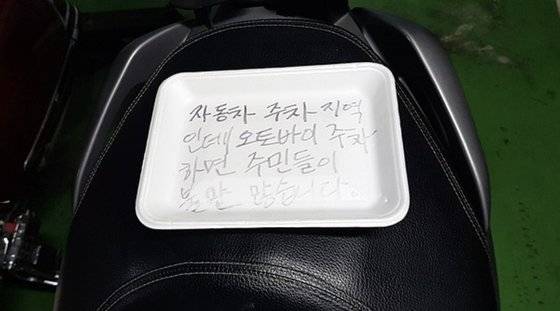 자동차 주차 지역
인데 오토바이 주차
하면 주민들이
불만 많습니다.